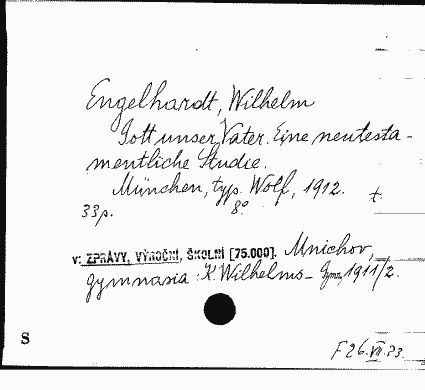 Engelhardt, Wilhelm
Gott unser Vater. Eine neutesta-
mentliche Studie.
München, typ. Wolf, 1912. t.
33p. 8°
v: ZPRÁVY, VÝROČNÍ, ŠKOLNÍ [75.000]. Mnichov,
gymnasia: K. Wilhelms-Gymn, 1911/2.
S
F26.VII.83